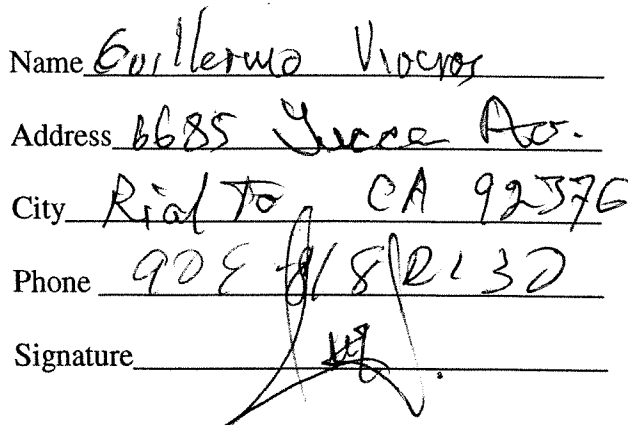 Name Guillermo
Address 6685 Yucca Av.
City Rialto CA 92376
Phone 909
Signature